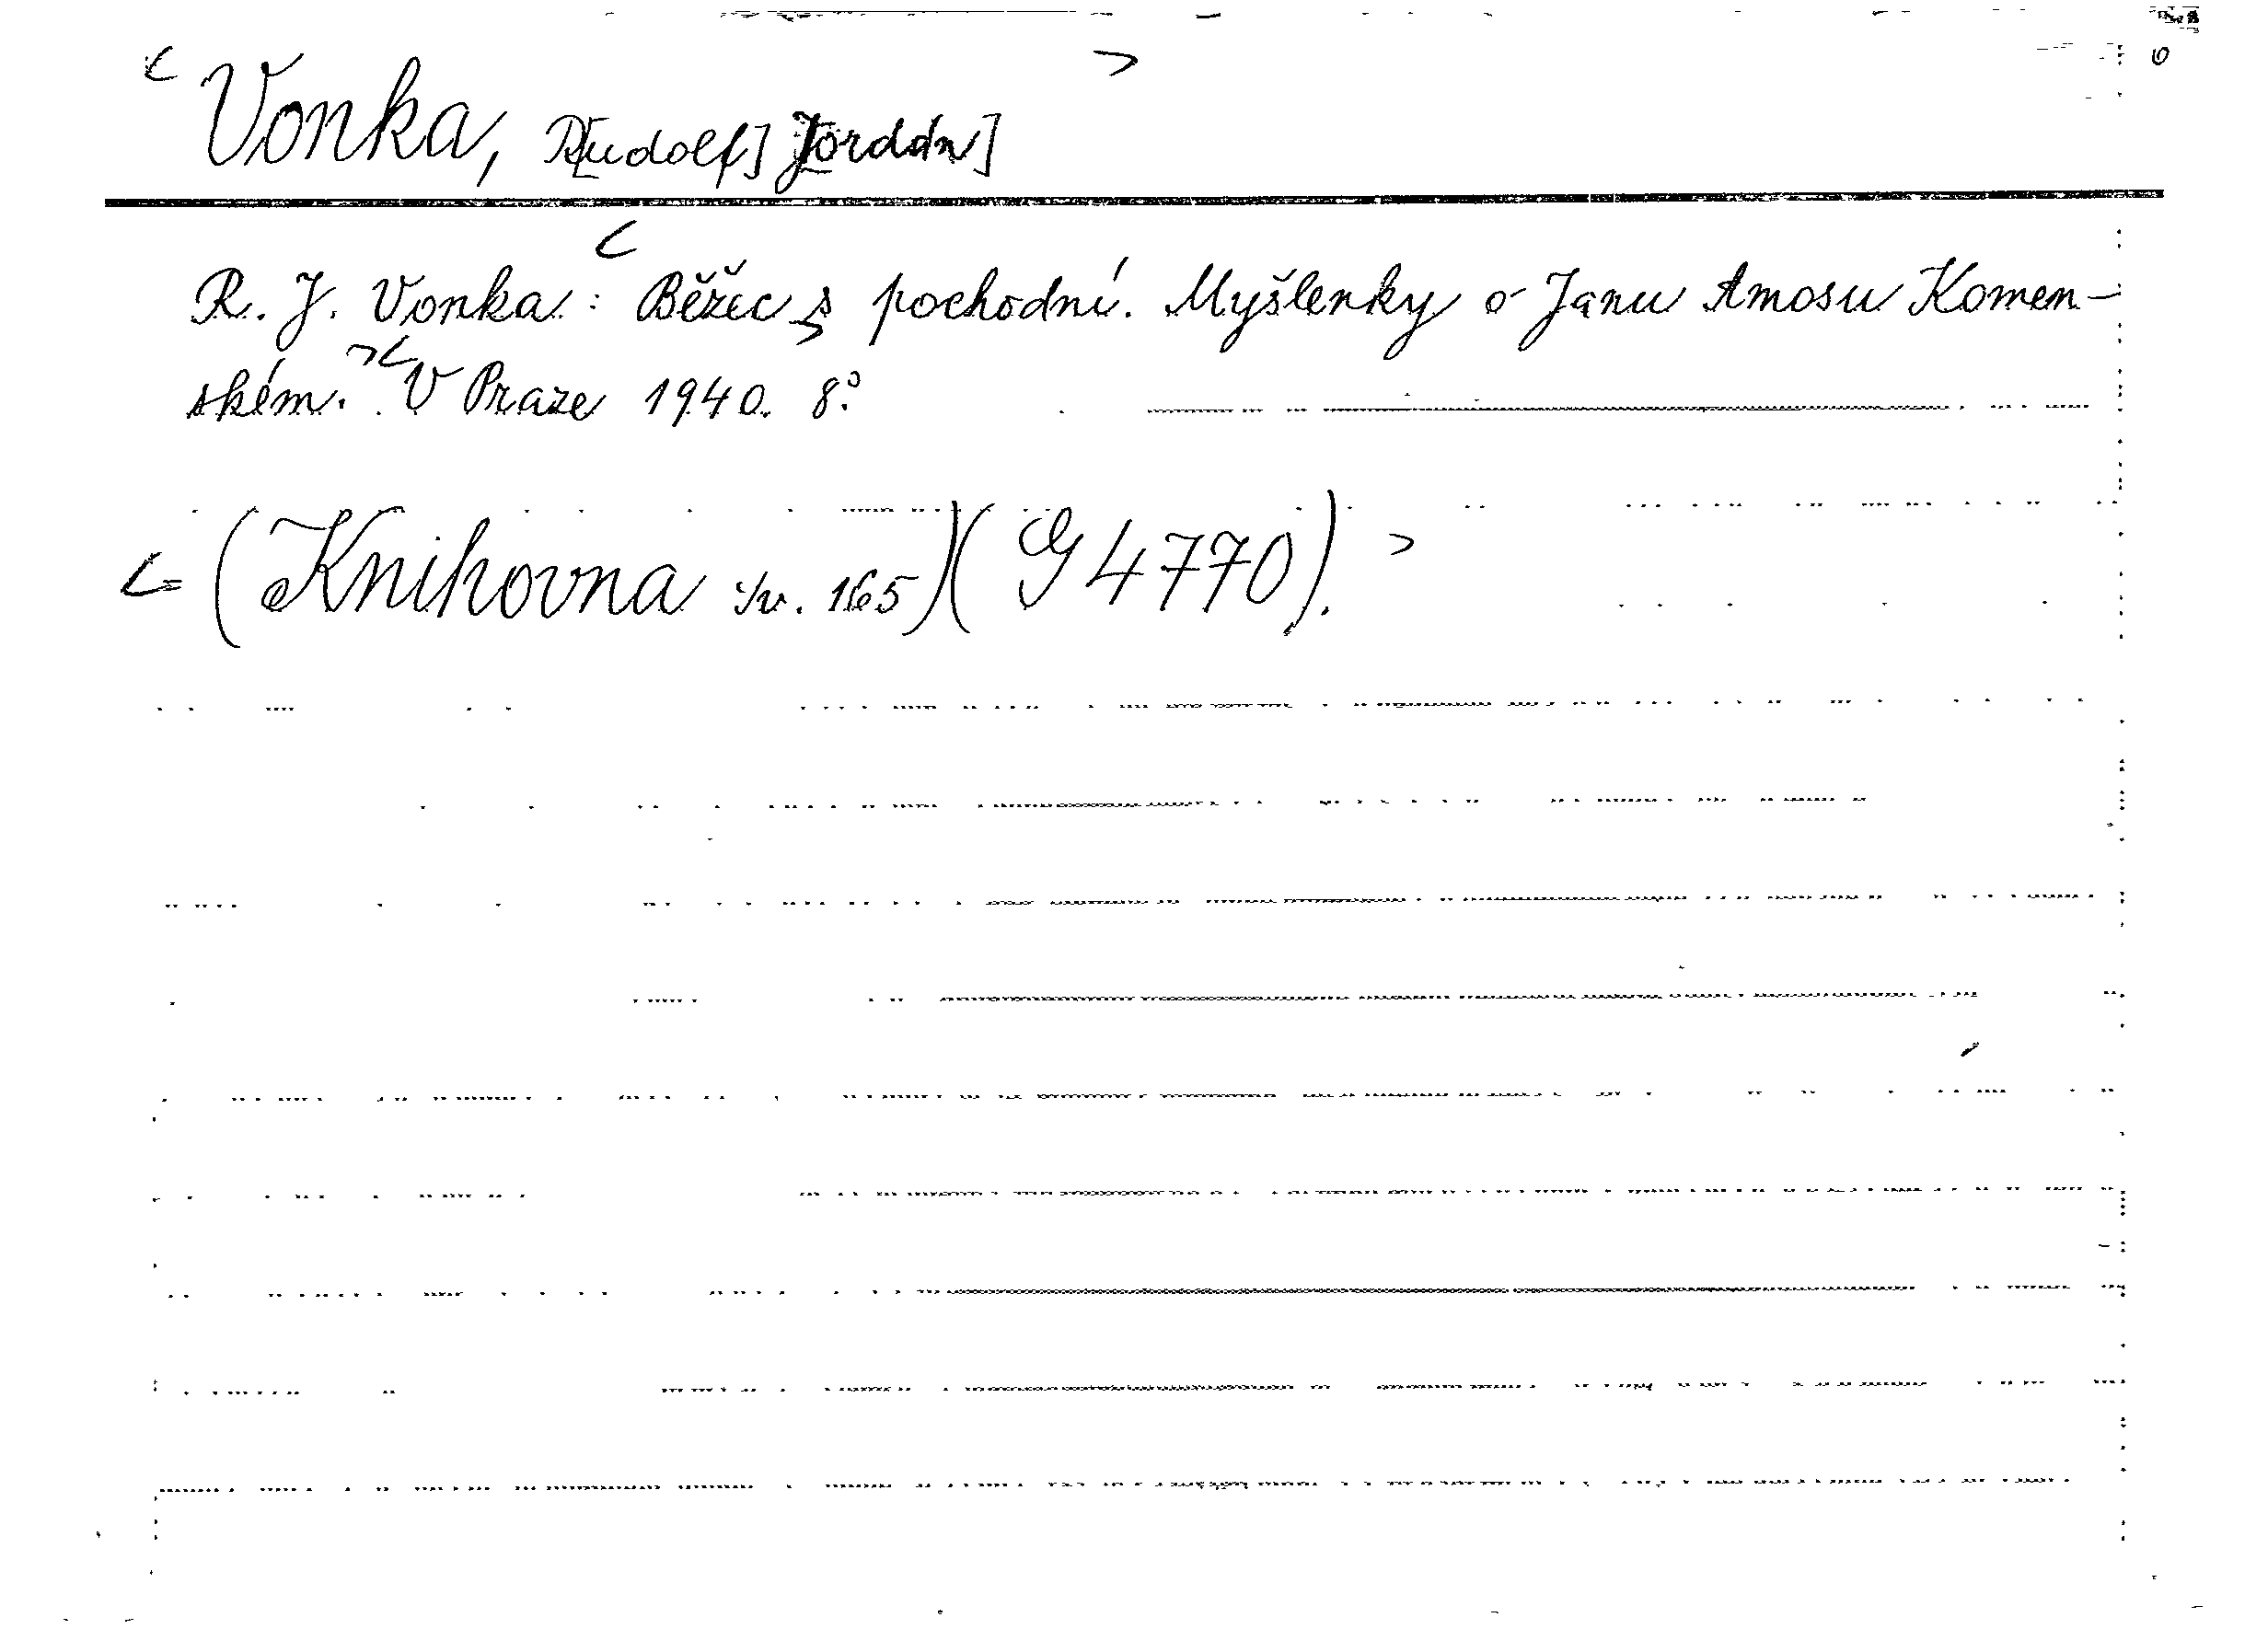 < Vonka, R[udolf] J[ordán] >
R. J. Vonka: < Běžec s pochodní. Myšlenky o Janu Amosu Komen-
ském. >< V Praze 1940. 8°.
<= (Knihovna sv. 165)(G 4770). >